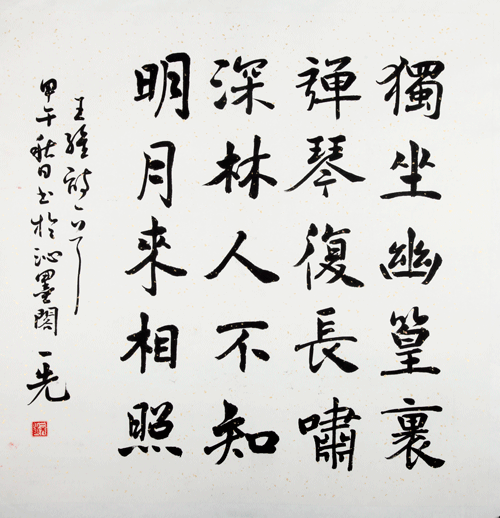 獨坐幽篁裏
彈琴復長嘯
深林人不知
明月來相照
王維詩一首
甲午秋日书於沁墨閣 一